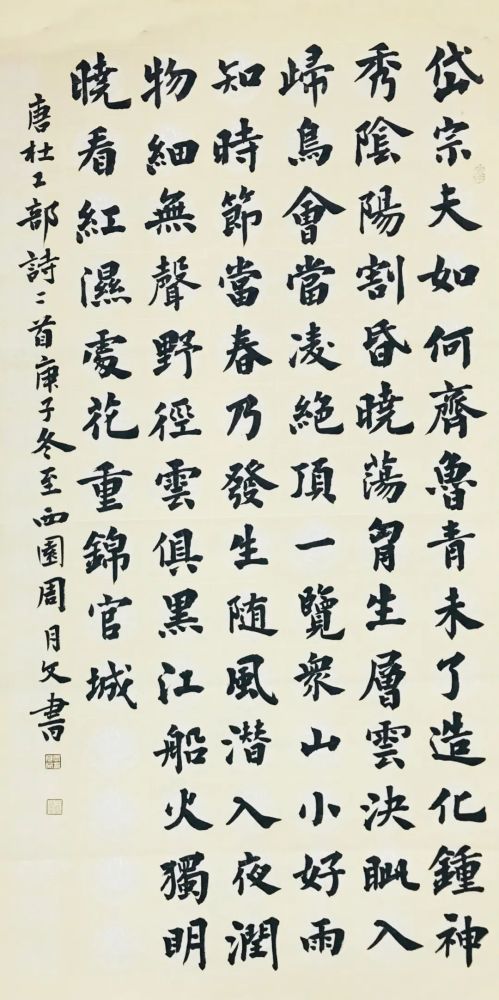 岱宗夫如何齊魯青未了造化鍾神
秀陰陽割昏曉蕩胷生層雲決眦入
歸鳥會當凌絕頂一覽衆山小好雨
知時節當春乃發生随風潜入夜潤
物細無聲野徑雲俱黑江船火獨明
曉看紅濕處花重錦官城
唐杜工部詩二首庚子冬至西園周月文書